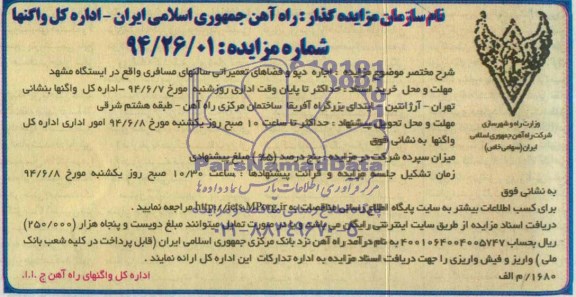 نام سازمان مزایده گذار : راه آهن جمهوری اسلامی ایران - اداره کل واگنها
شماره مزایده : ۹۴/۲۶/۰۱
شرح مختصر موضوع مزایده : اجاره دپو و فضاهای تعمیراتی سالنهای مسافری واقع در ایستگاه مشهد
مهلت و محل خرید اسناد : حداکثر تا پایان وقت اداری روز شنبه مورخ ۹۴/۶/۷ -اداره کل واگنها بنشانی
تهران - آرژانتین - ابتدای بزرگراه آفریقا ساختمان مرکزی راه آهن - طبقه هشتم شرقی
مهلت و محل تحویل پیشنهاد : حداکثر تا ساعت ۱۰ صبح روز یکشنبه مورخ ۹۴/۶/۸ امور اداری اداره کل
واگنها به نشانی فوق
میزان سپرده شرکت در مزایده : پنج درصد (۵٪) مبلغ پیشنهادی
زمان تشکیل جلسه مزایده و قرائت پیشنهادها : ساعت ۱۰/۳۰ صبح روز یکشنبه مورخ ۹۴/۶/۸
به نشانی فوق
برای کسب اطلاعات بیشتر به سایت پایگاه اطلاع رسانی مناقصات به مراجعه نمایید .
دریافت اسناد مزایده از طریق سایت اینترنتی رایگان می باشد و در صورت تمایل میتوانند مبلغ دویست و پنجاه هزار (۲۵۰/۰۰۰)
ریال بحساب ۴۰۰۱۰۶۴۰۰۴۰۰۵۷۴۷ به نام درآمد راه آهن نزد بانک مرکزی جمهوری اسلامی ایران (قابل پرداخت در کلیه شعب بانک
ملی ) واریز و فیش واریزی را جهت دریافت اسناد مزایده به اداره تدارکات این اداره کل ارائه نمایند .
۱۶۸۰/ م الف
اداره کل واگنهای راه آهن ج .ا.ا.
وزارت راه و شهرسازی
شرکت راه آهن جمهوری اسلامی
ایران (سهامی خاص)
ParsNamadData
مرکز فرآوری اطلاعات پارس نماد داده ها
۰۲۱-۸۸۳۴۹۶۷۰-۵